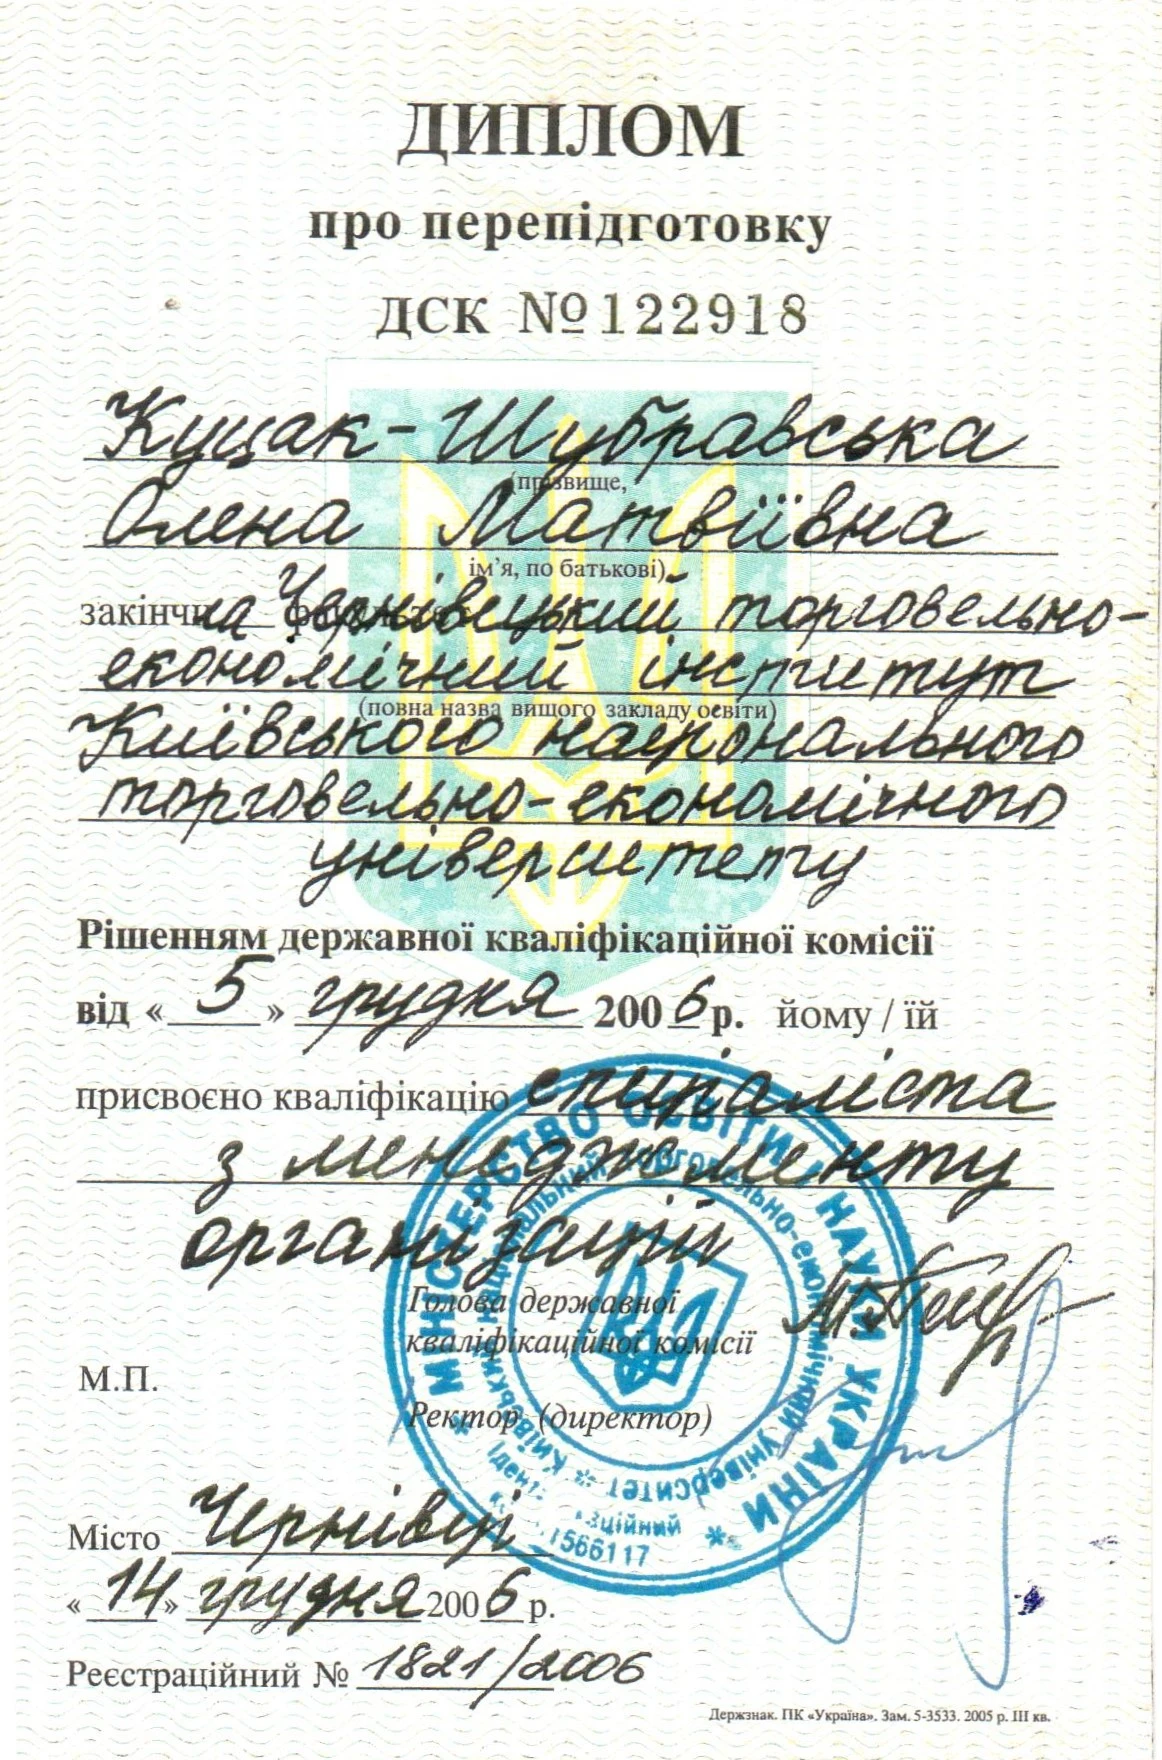 ДИПЛОМ
про перепідготовку
ДСК №122918
Куцак-Шубравська
(прізвище,
Олена Матвіївна
ім’я, по батькові)
закінчила Чернівецький торговельно-
економічний інститут
(повна назва вищого закладу освіти)
Київського національного
торговельно-економічного
університету
Рішенням державної кваліфікаційної комісії
від « 5 » грудня 2006 р. йому / їй
присвоєно кваліфікацію спеціаліста
з менеджменту
організацій
Голова державної
кваліфікаційної комісії
М.П.
Ректор (директор)
МІНІСТЕРСТВО ОСВІТИ І НАУКИ УКРАЇНИ
Київський національний торговельно-економічний університет
Місто Чернівці
« 14 » грудня 2006 р.
Реєстраційний № 1821/2006
Держзнак. ПК «Україна». Зам. 5-3533. 2005 р. III кв.